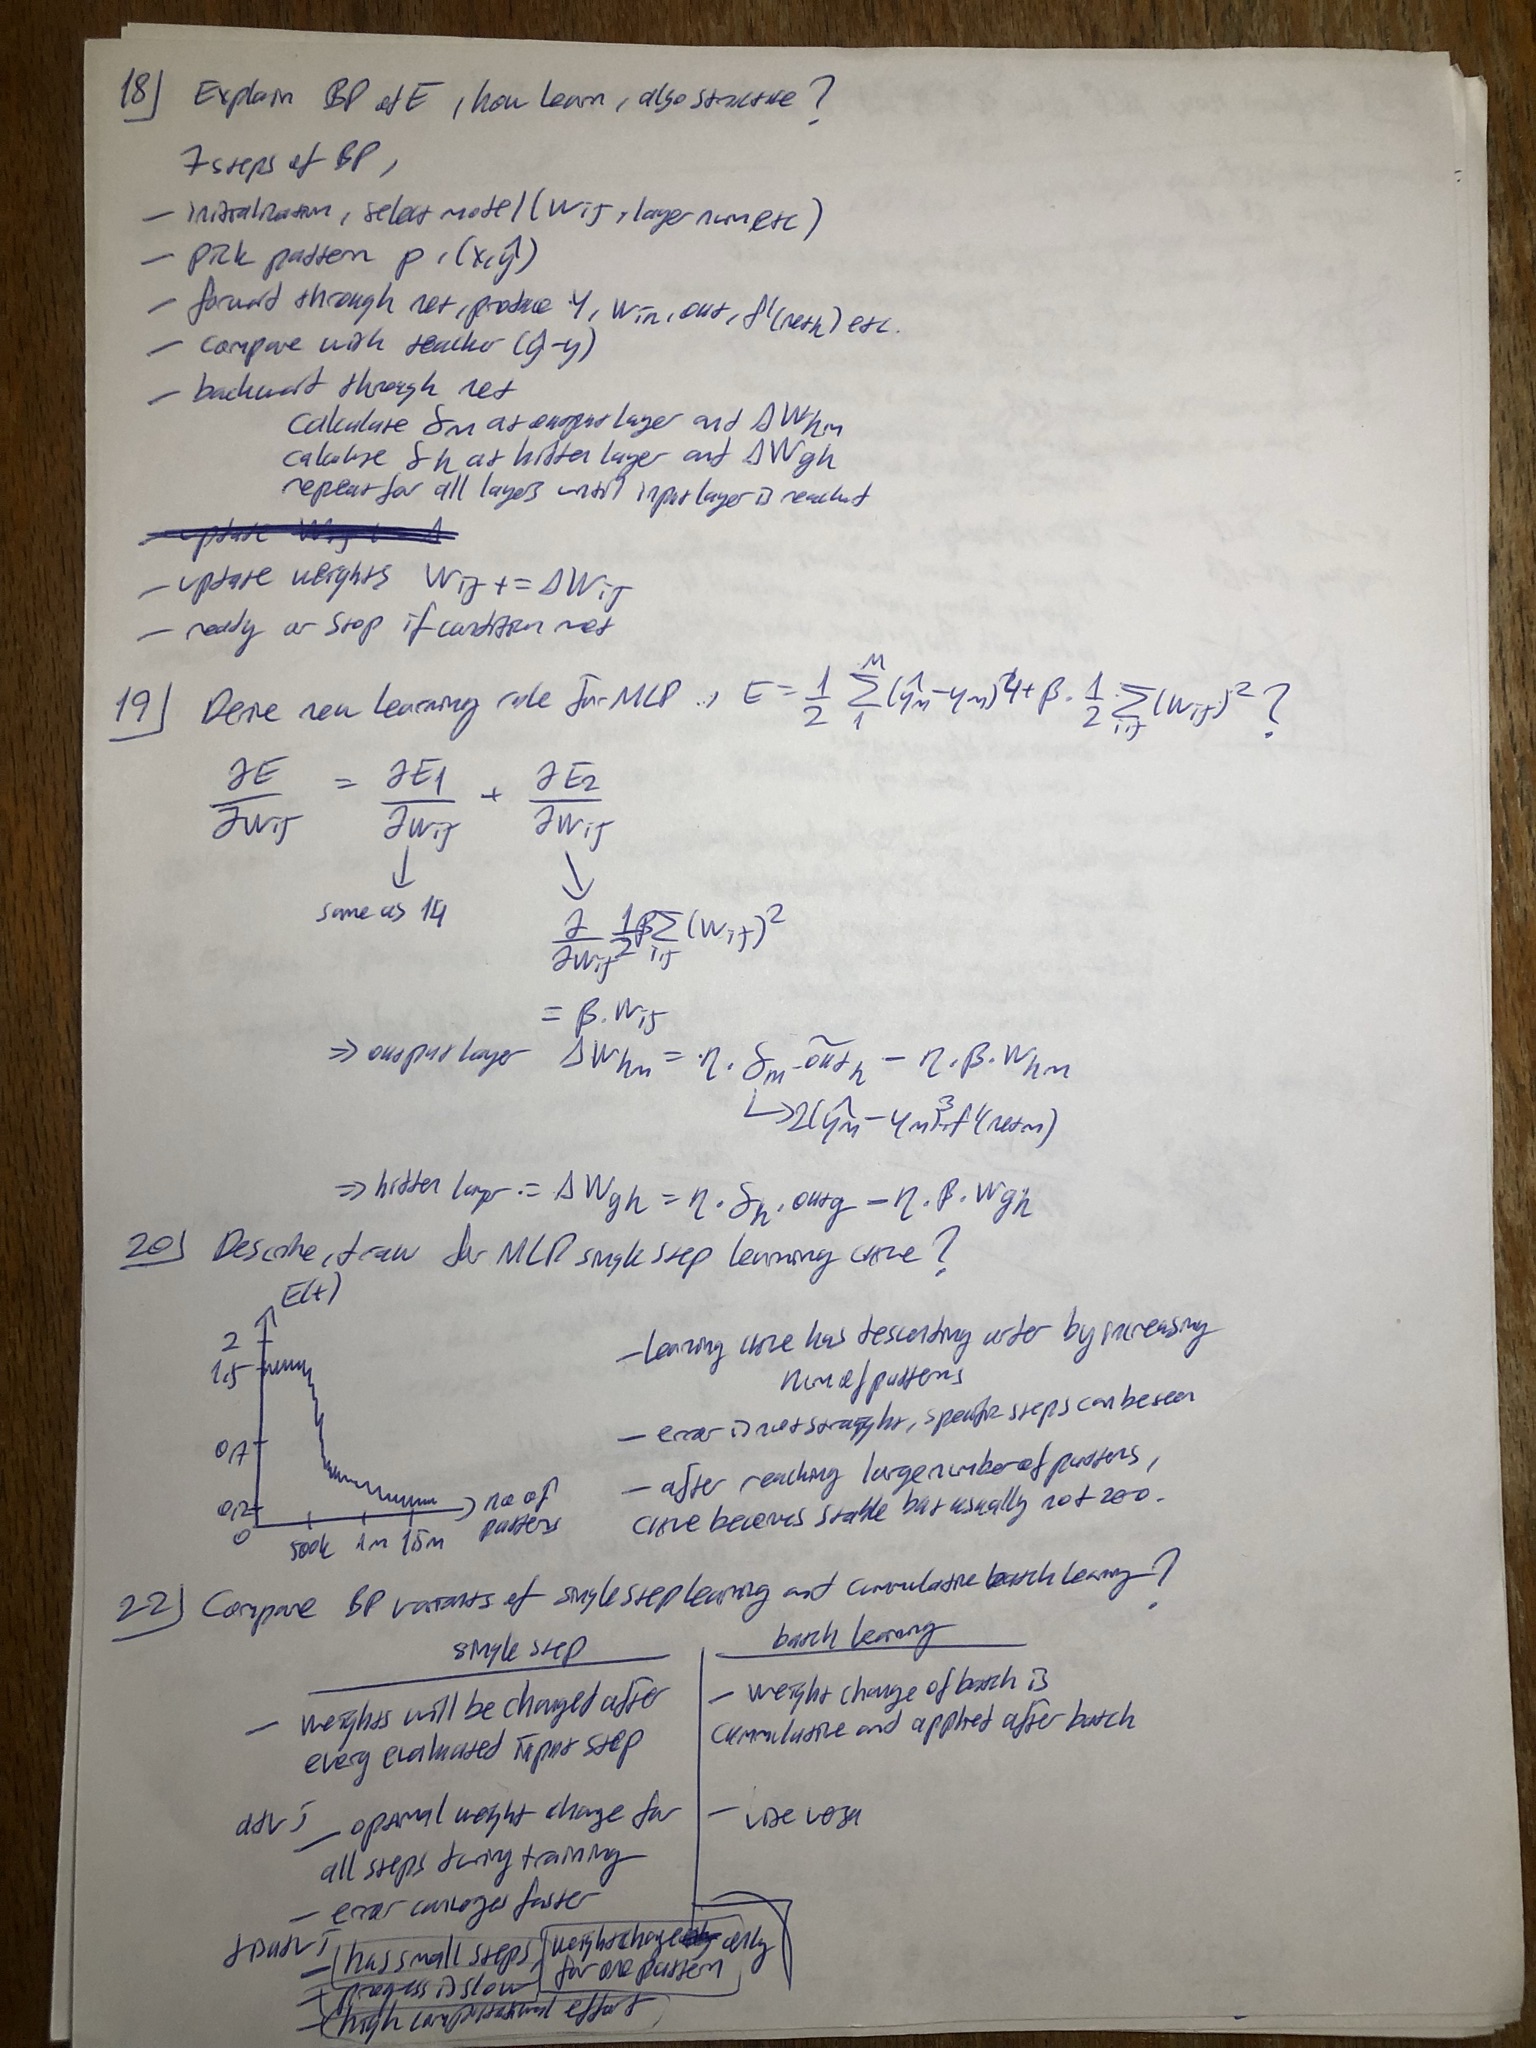 18] Explain BP of E, how learn, also structure?
7 steps of BP,
- initialization, select model (Wij, layer num etc)
- pick pattern p, (x, ŷ)
- forward through net, produce y, win, out, f'(neth) etc.
- compare with teacher (ŷ-y)
- backward through net
calculate δm at output layer and ΔWhm
calculate δh at hidden layer and ΔWgh
repeat for all layers until input layer is reached
- update weights Wij += ΔWij
- ready or stop if condition met
19] Derive new learning rule for MLP, E = 1/2 Σ_1^M (ŷm - ym)^4 + β · 1/2 Σ_i,j (Wij)^2 ?
∂E/∂Wij = ∂E1/∂Wij + ∂E2/∂Wij
↓ ↘
same as 14
∂/∂Wij 1/2 β Σ_i,j (Wij)^2
= β · Wij
⇒ output layer ΔWhm = η · δm · out~h - η · β · Whm
↳ 2(ŷm - ym)^3 · f'(netm)
⇒ hidden layer := ΔWgh = η · δh · outg - η · β · Wgh
20] Describe, draw for MLP single step learning curve?
E(t)
2
1.5
0,7
0,2
0
500k 1m 1.5m
no of
patterns
- learning curve has descending order by increasing
num of patterns
- error is not straight, specific steps can be seen
- after reaching large number of patterns,
curve becomes stable but usually not zero.
22] Compare BP variants of single step learning and cumulative batch learning?
single step
- weights will be changed after
every evaluated input step
advT
- optimal weight change for
all steps during training
- error converges faster
disadvT
- has small steps, weight change only
for one pattern
- progress is slow
- high computational effort
batch learning
- weight change of batch is
cummulative and applied after batch
- vice versa